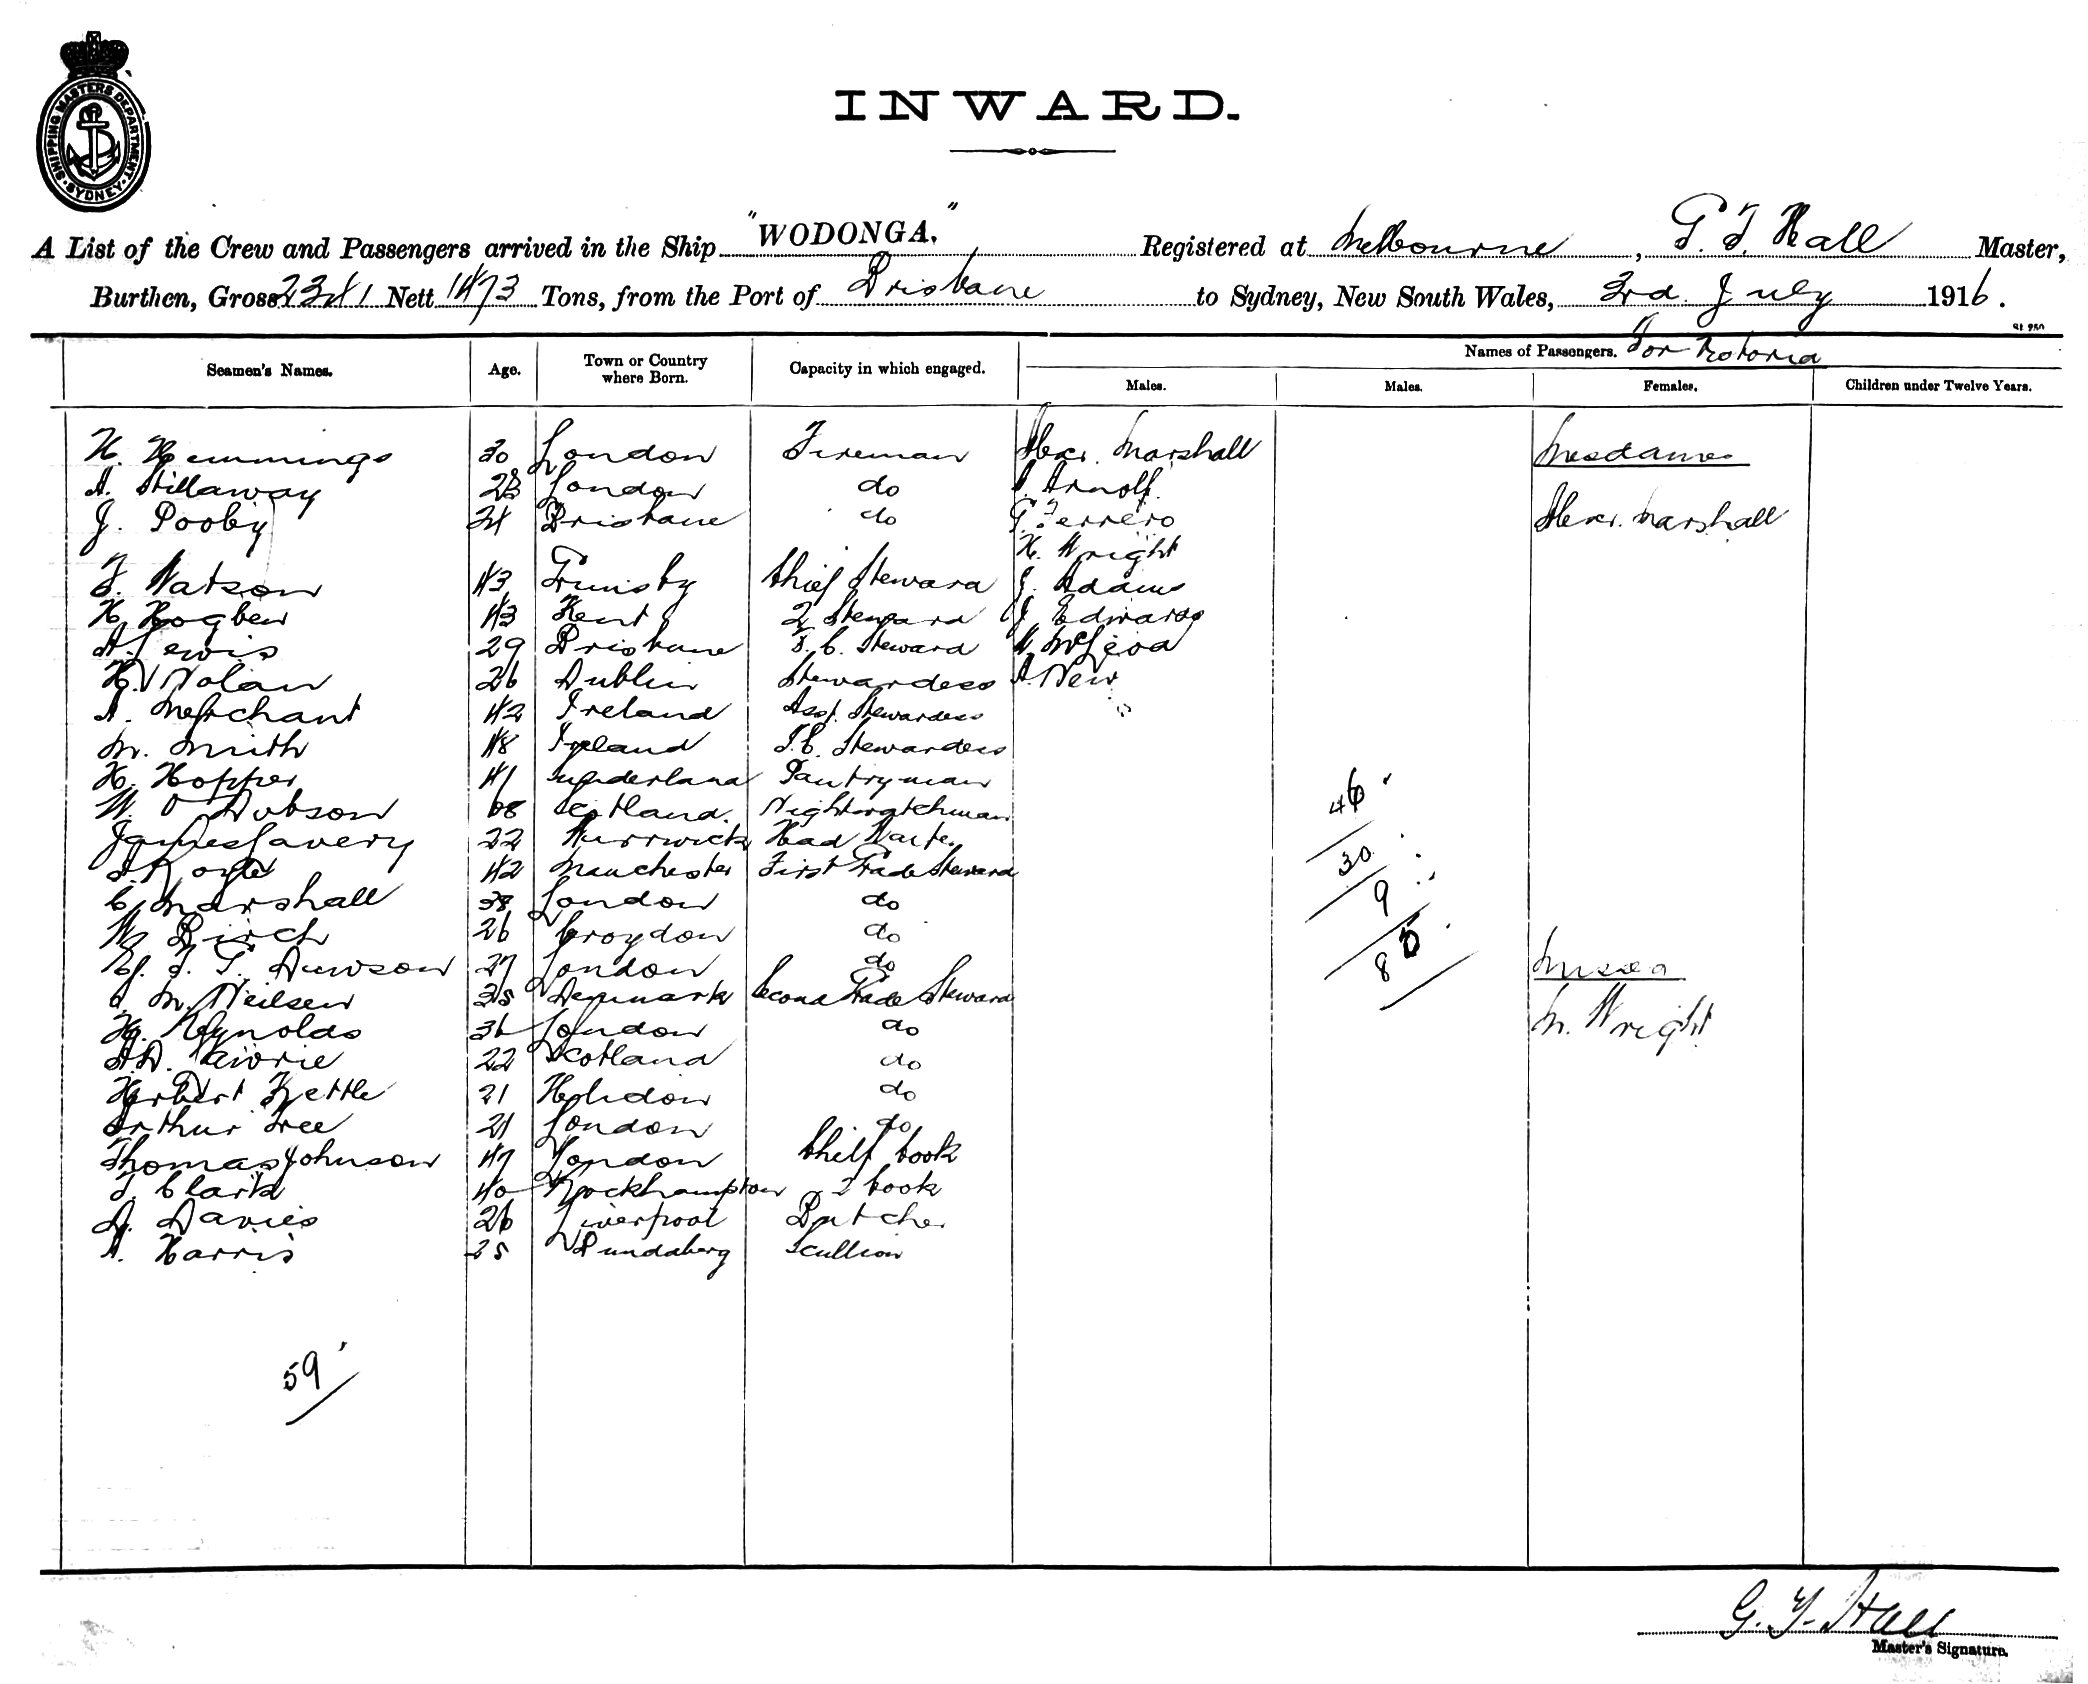 SHIPPING MASTERS DEPARTMENT. SYDNEY.
INWARD.
A List of the Crew and Passengers arrived in the Ship "WODONGA." Registered at Melbourne, G. T. Hall Master,
Burthen, Gross 2341 Nett 1473 Tons, from the Port of Brisbane to Sydney, New South Wales, 3rd July 1916.
Seamen's Names. Age. Town or Country where Born. Capacity in which engaged. Names of Passengers. For
Males. Males. Females. Children under Twelve Years.
H. Hemmings 30 London Fireman Alexr. Marshall Mesdames
A. Stillaway 28 London do Arnolf.
J. Pooby 24 Brisbane do G. Ferrero Alexr. Marshall
H. Wright
F. Watson 43 Grimsby Chief Steward J. Adams
H. Hogben 43 Kent 2 Steward J Edwards
A. Lewis 29 Brisbane S. C. Steward McLeod
H. Nolan 26 Dublin Stewardess A. New
A. Merchant 42 Ireland Asst. Stewardess
M. Smith 48 Ireland S.C. Stewardess
H. Hopper 41 Sunderland Pantryman
W. Dobson 68 Scotland. Nightwatchman
James Lavery 22 Head Waiter
42 Manchester First Grade Steward
C. Marshall 38 London do
W. Birch 26 Croydon do
T. Dawson 27 London do
M. Neilsen 35 Denmark Second Grade Steward
H. Reynolds 36 London do
A. D. Lawrie 22 Scotland do
Herbert Kettle 21 do
Arthur Free 21 London do
Thomas Johnson 47 London Chief Cook
T. Clark 40 Rockhampton 2 Cook
A. Davies 26 Liverpool Butcher
A. Harris 25 Bundaberg Scullion
46
30
9
85
Misses
M. Wright
59
G. T. Hall
Master's Signature.